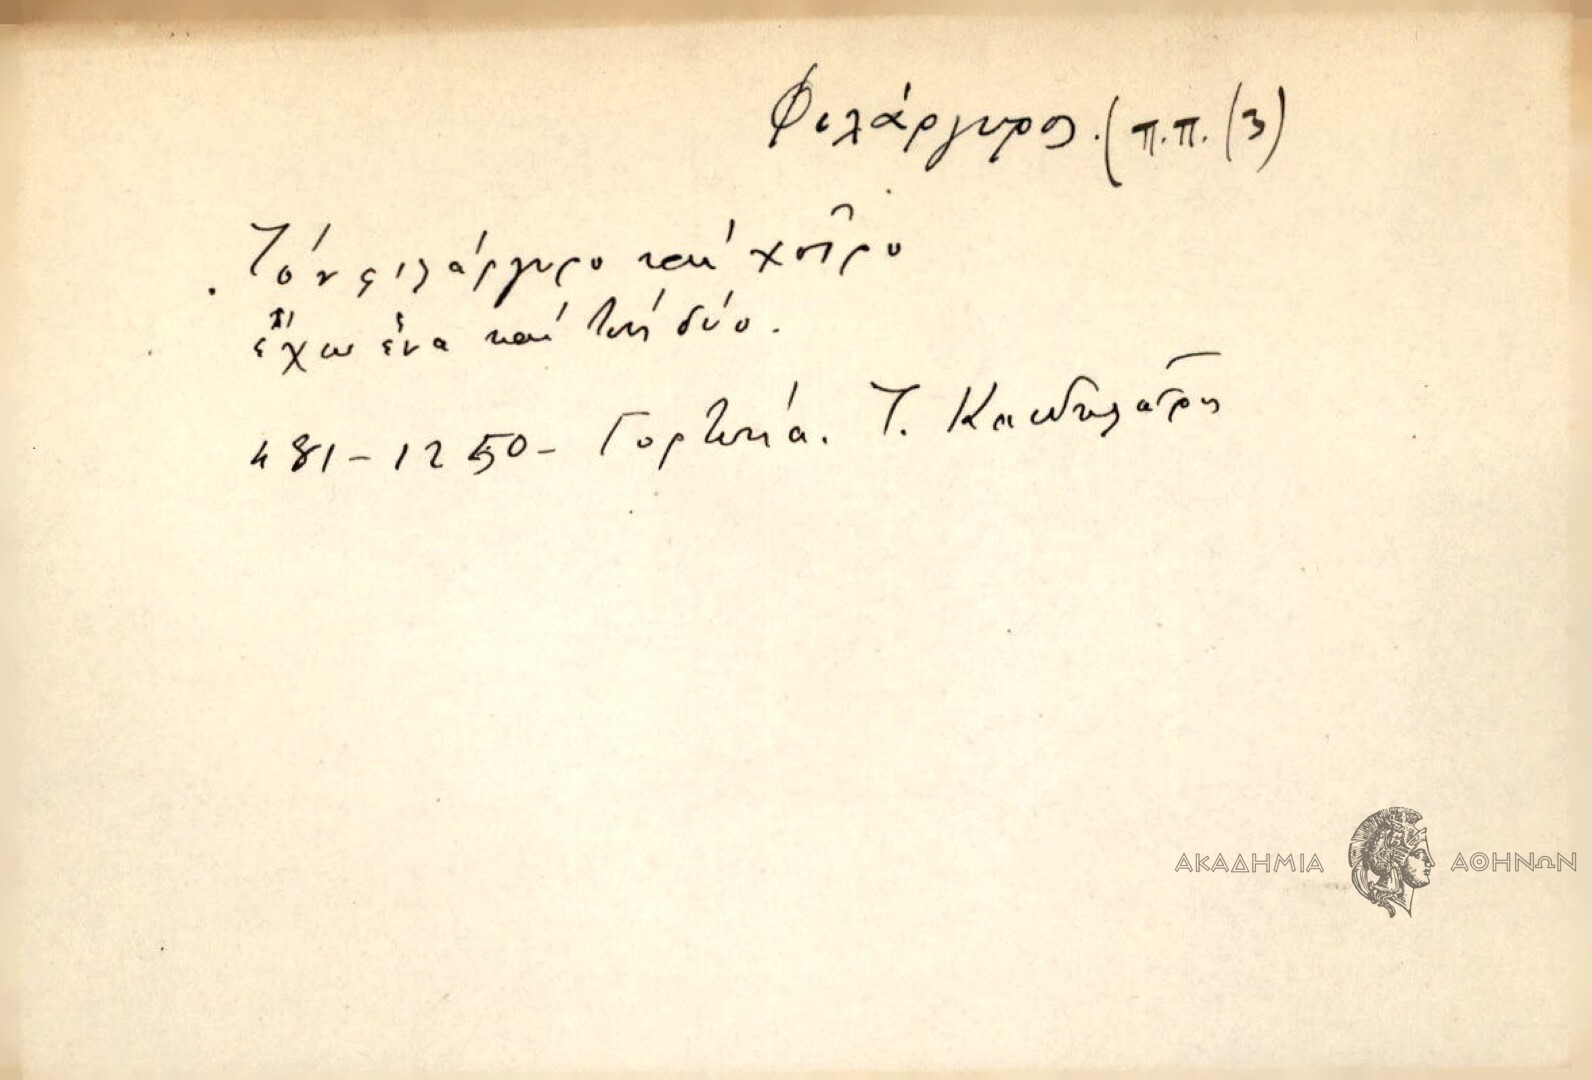 Φιλάργυρος. (π.π. (3)
Τόν φιλάργυρο καί χοῖρο
ἔχω ἕνα καί τούς δύο.
481-1250- Γορτυνία. Τ. Κανδηλῶρος
ΑΚΑΔΗΜΙΑ ΑΘΗΝΩΝ